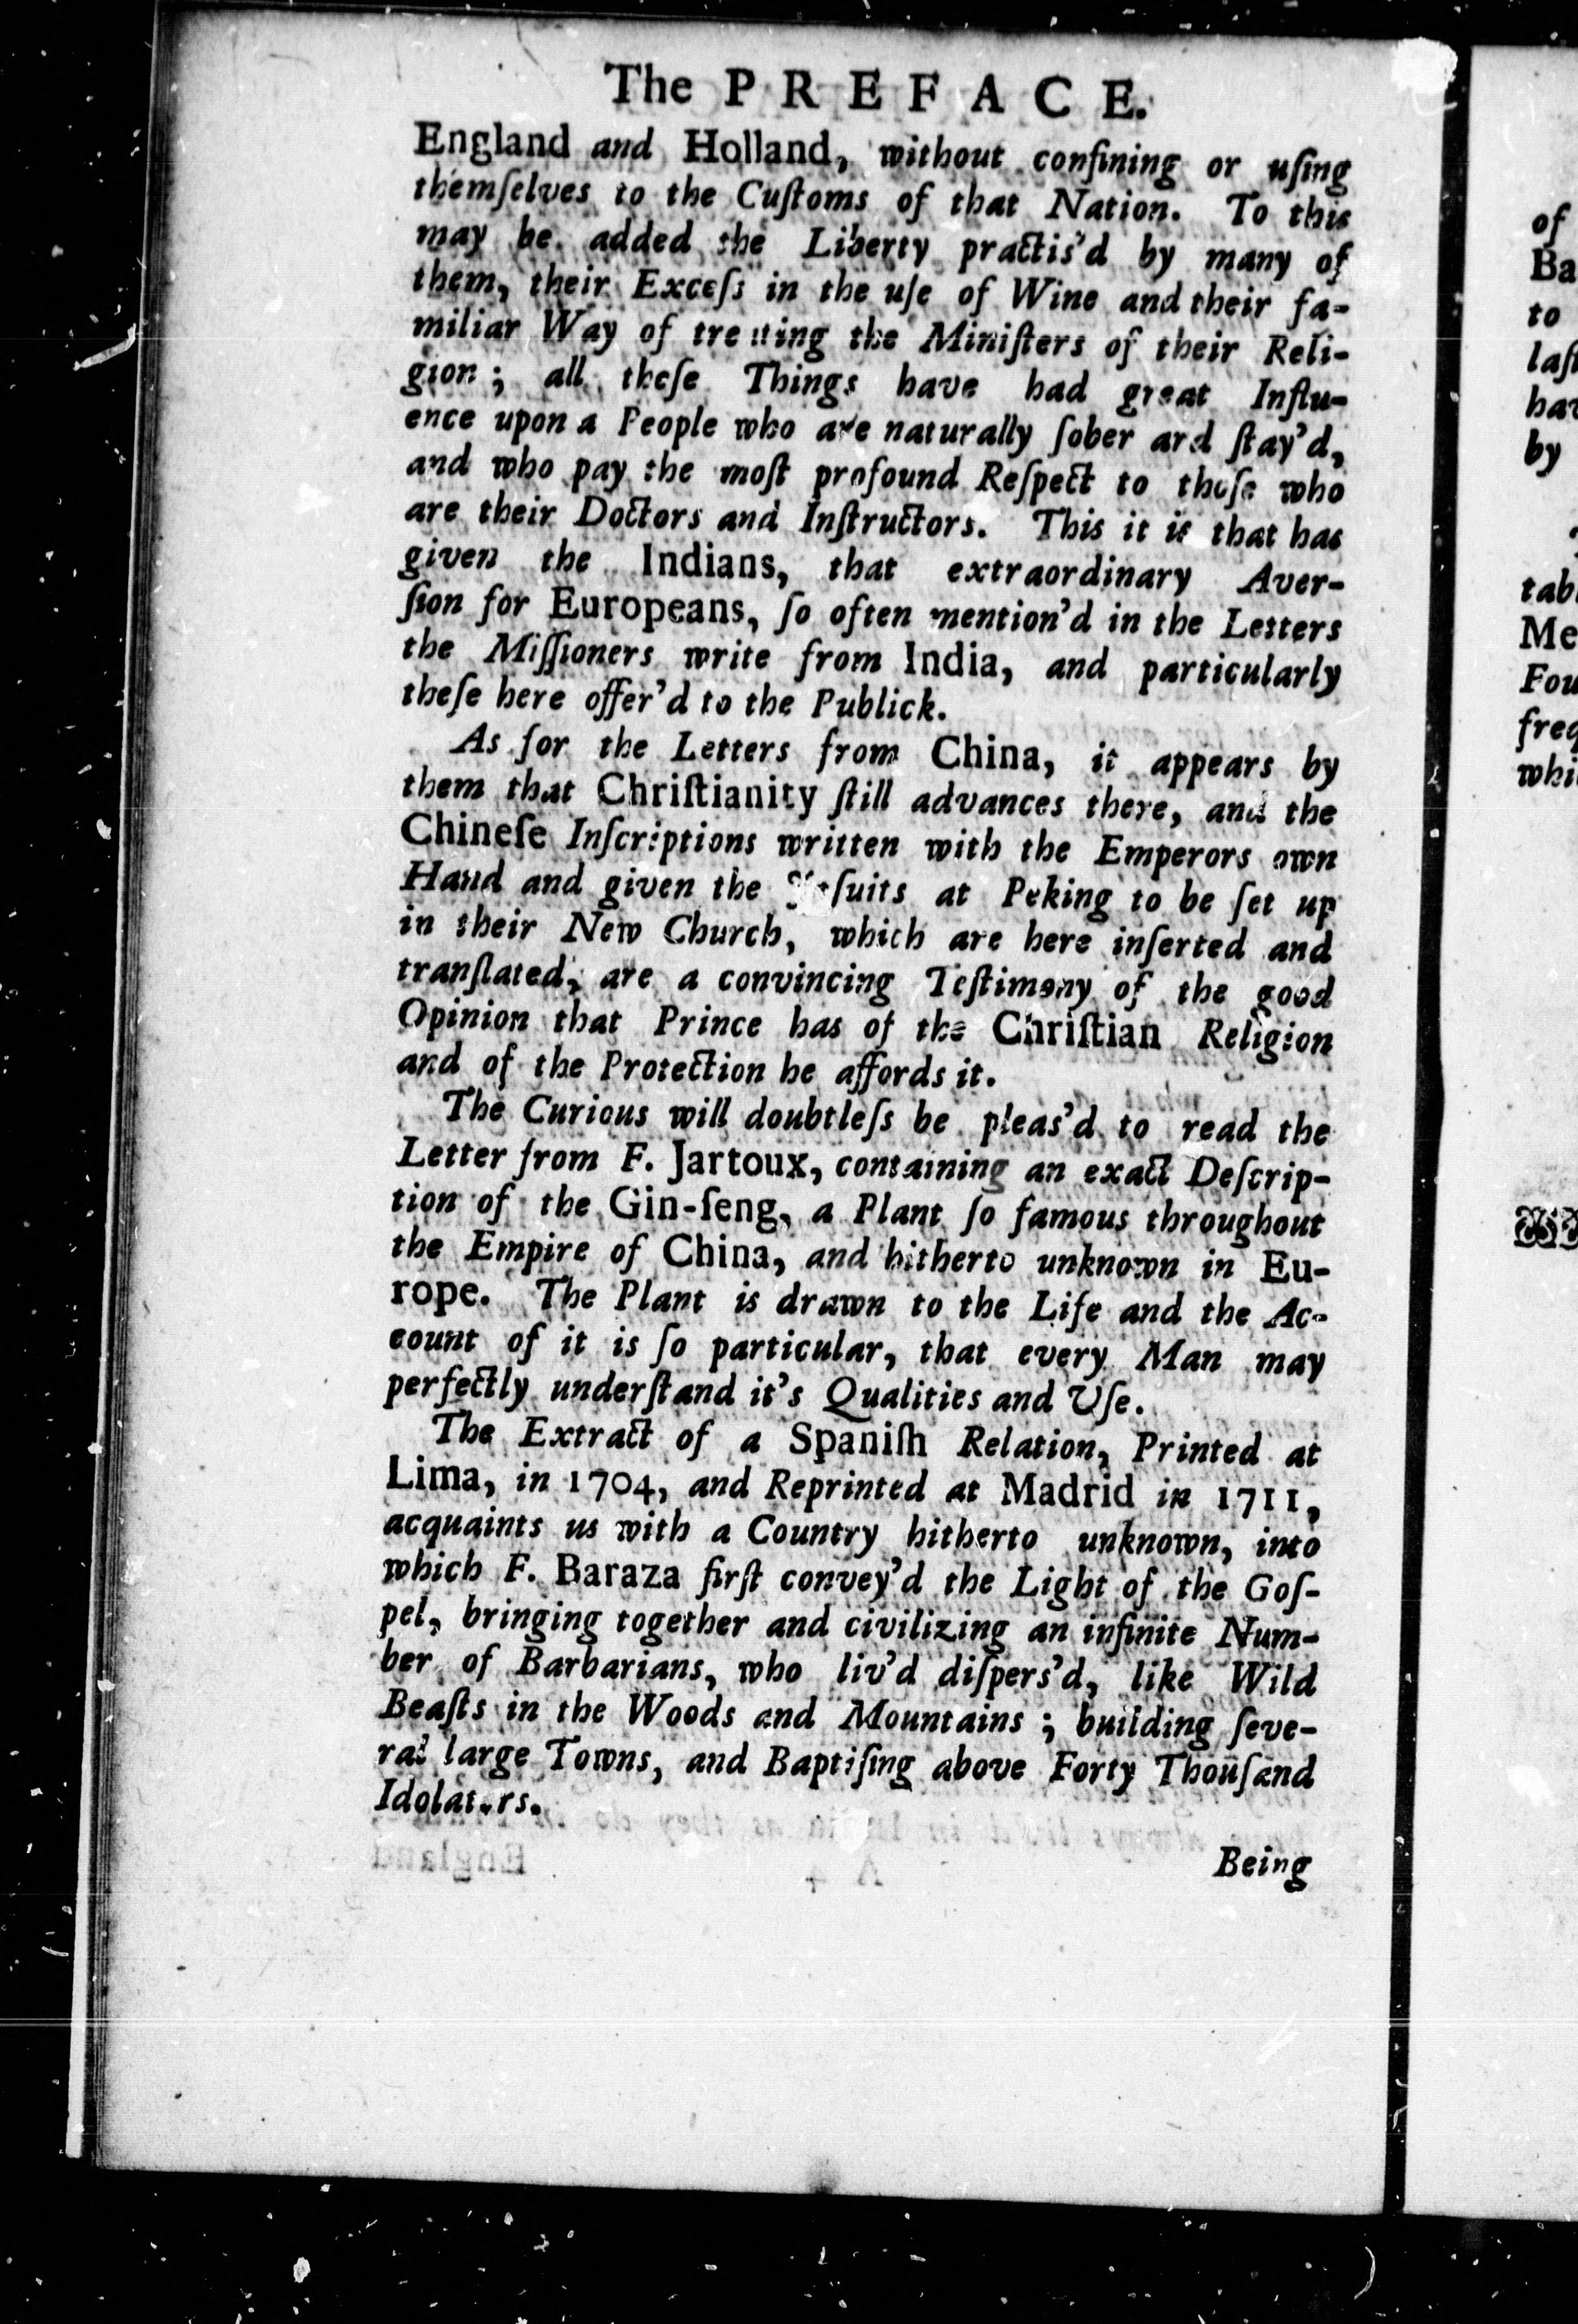 The PREFACE.
England and Holland, without confining or uſing
themſelves to the Cuſtoms of that Nation. To this
may be added the Liberty practis'd by many of
them, their Exceſs in the uſe of Wine and their fa-
miliar Way of treating the Miniſters of their Reli-
gion; all theſe Things have had great Influ-
ence upon a People who are naturally ſober and ſtay'd,
and who pay the moſt profound Reſpect to thoſe who
are their Doctors and Inſtructors. This it is that has
given the Indians, that extraordinary Aver-
ſion for Europeans, ſo often mention'd in the Letters
the Miſſioners write from India, and particularly
theſe here offer'd to the Publick.
As for the Letters from China, it appears by
them that Chriſtianity ſtill advances there, and the
Chineſe Inſcriptions written with the Emperors own
Hand and given the Jeſuits at Peking to be ſet up
in their New Church, which are here inſerted and
tranſlated, are a convincing Teſtimony of the good
Opinion that Prince has of the Chriſtian Religion
and of the Protection he affords it.
The Curious will doubtleſs be pleas'd to read the
Letter from F. Jartoux, containing an exact Deſcrip-
tion of the Gin-ſeng, a Plant ſo famous throughout
the Empire of China, and hitherto unknown in Eu-
rope. The Plant is drawn to the Life and the Ac-
count of it is ſo particular, that every Man may
perfectly underſtand it's Qualities and Uſe.
The Extract of a Spaniſh Relation, Printed at
Lima, in 1704, and Reprinted at Madrid in 1711,
acquaints us with a Country hitherto unknown, into
which F. Baraza firſt convey'd the Light of the Goſ-
pel, bringing together and civilizing an infinite Num-
ber of Barbarians, who liv'd diſpers'd, like Wild
Beaſts in the Woods and Mountains; building ſeve-
ral large Towns, and Baptiſing above Forty Thouſand
Idolaters.
Being
of
Ba
to
laſ
hav
by
tab
Me
Fou
freq
whi